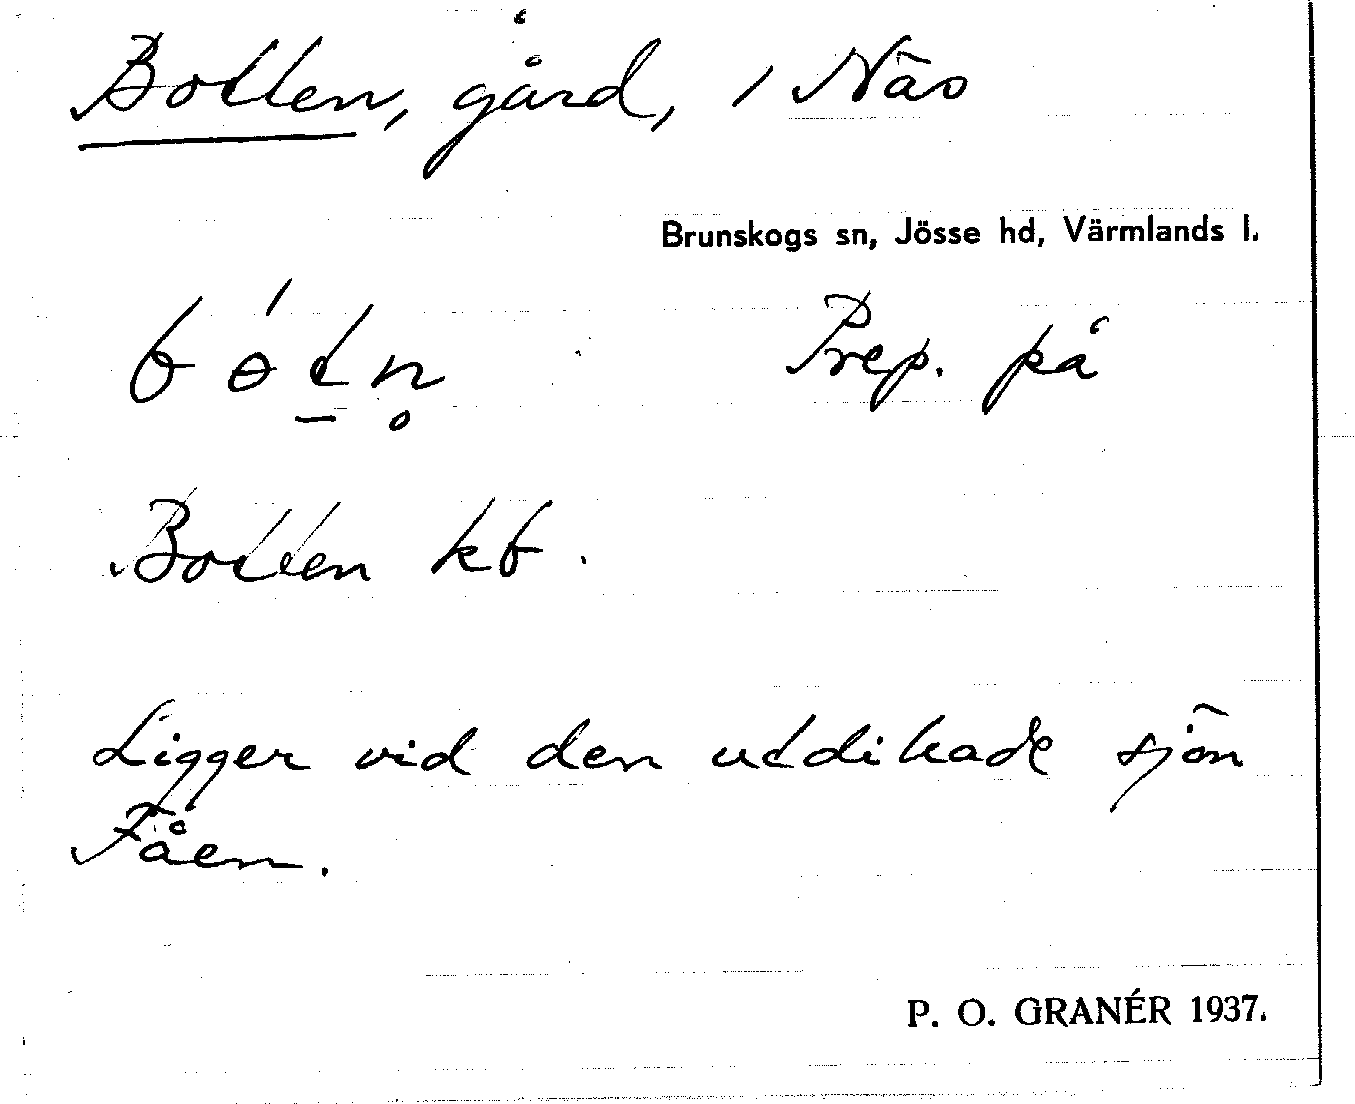 Botten, gård, i Näs
Brunskogs sn, Jösse hd, Värmlands l.
bɵ́t̠n̥ Prep. på
Botten kb.
Ligger vid den utdikade sjön
Fåen.
P. O. GRANÉR 1937.